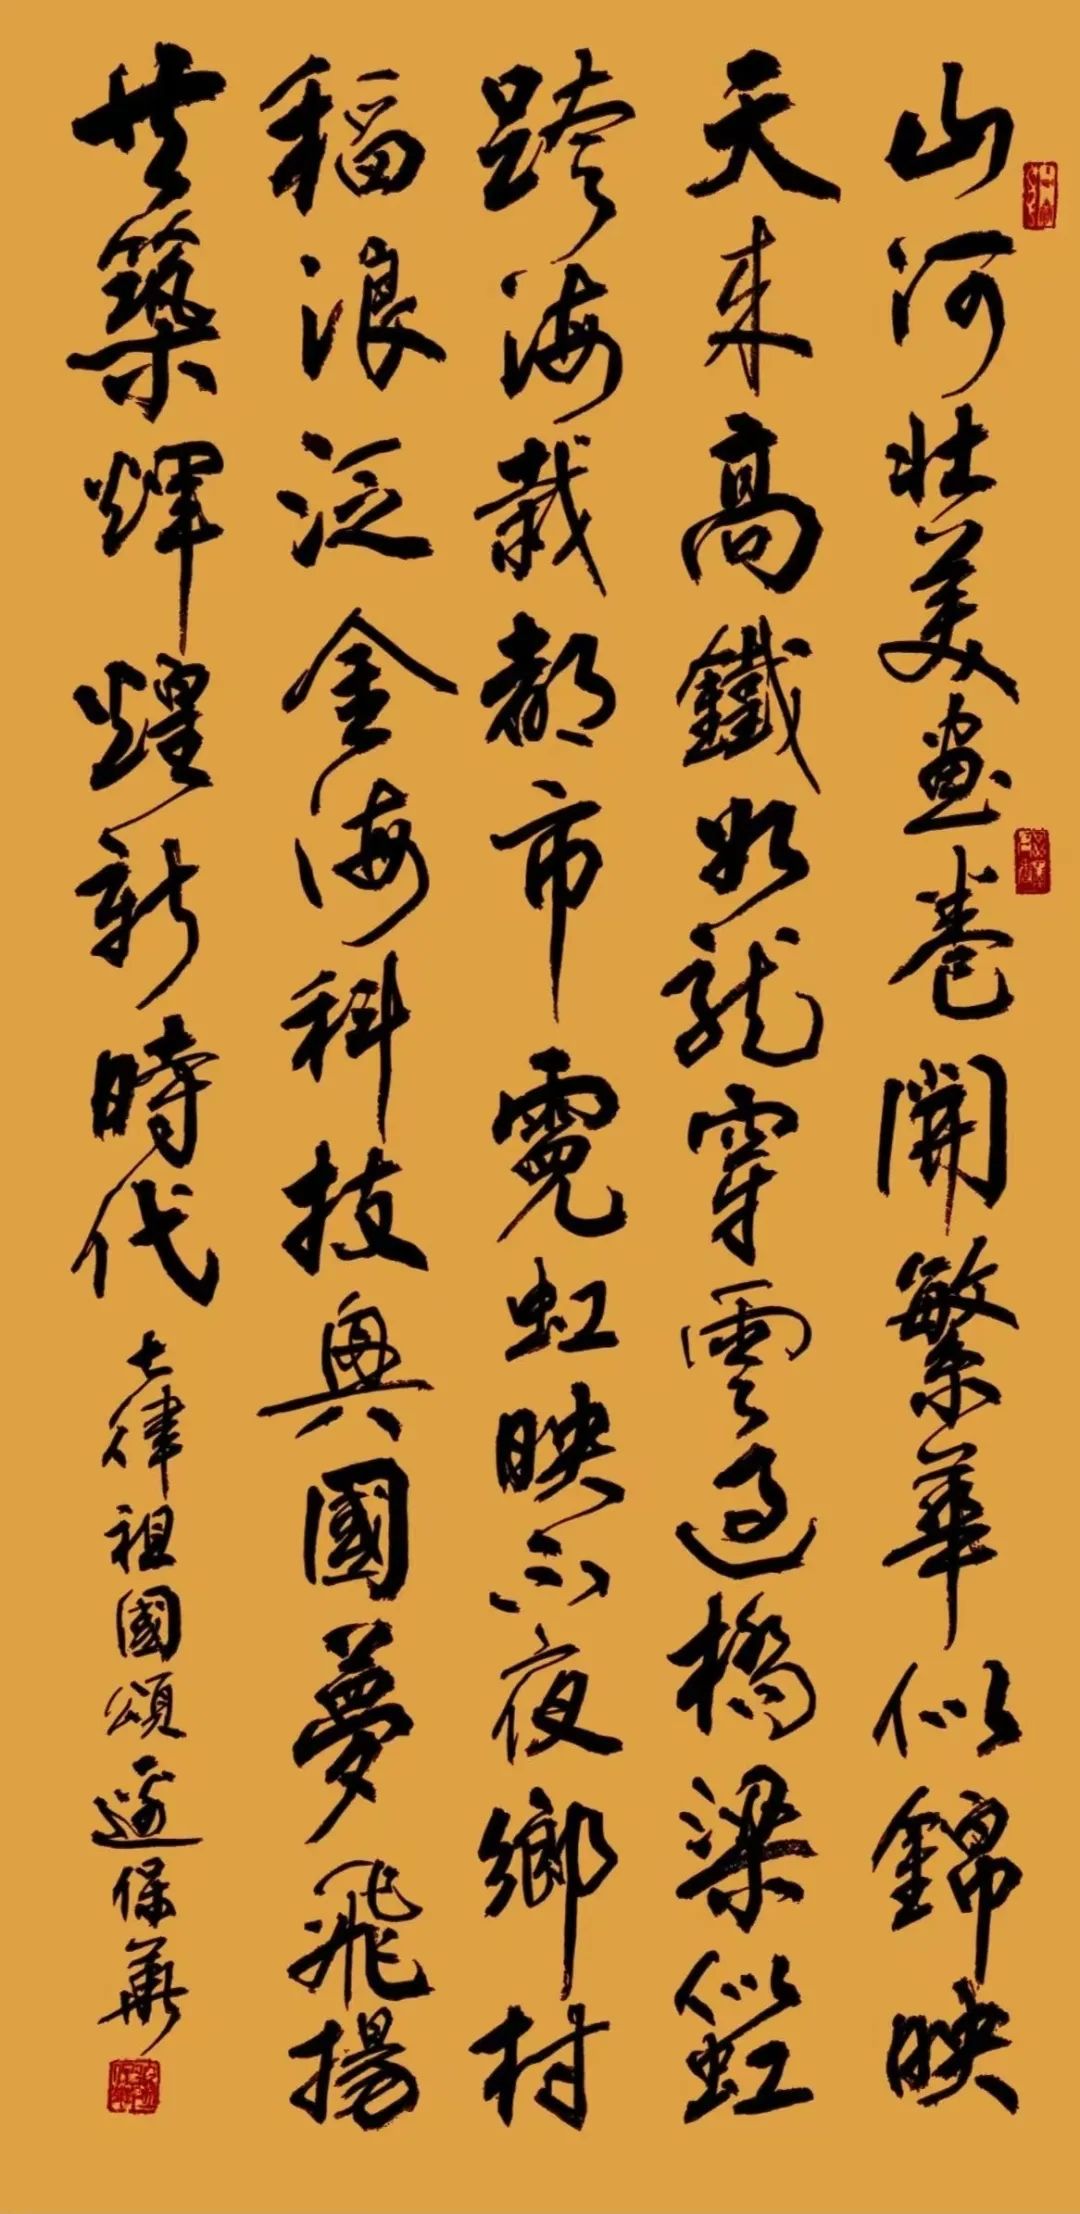 山河壯美畫卷開繁華似錦映
天來高鐵如龍穿雲過橋梁似虹
跨海栽都市霓虹映不夜鄉村
稻浪泛金海科技興國夢飛揚
共築輝煌新時代
七律祖國頌邊保華